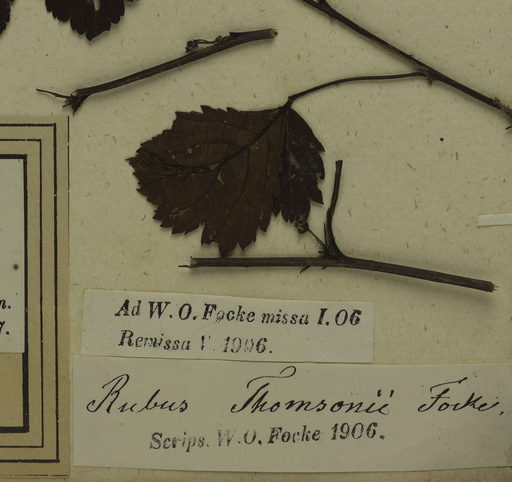 n.
7.
Ad W. O. Focke missa I. 06
Remissa V. 1906.
Rubus Thomsonii Focke.
Scrips. W. O. Focke 1906.